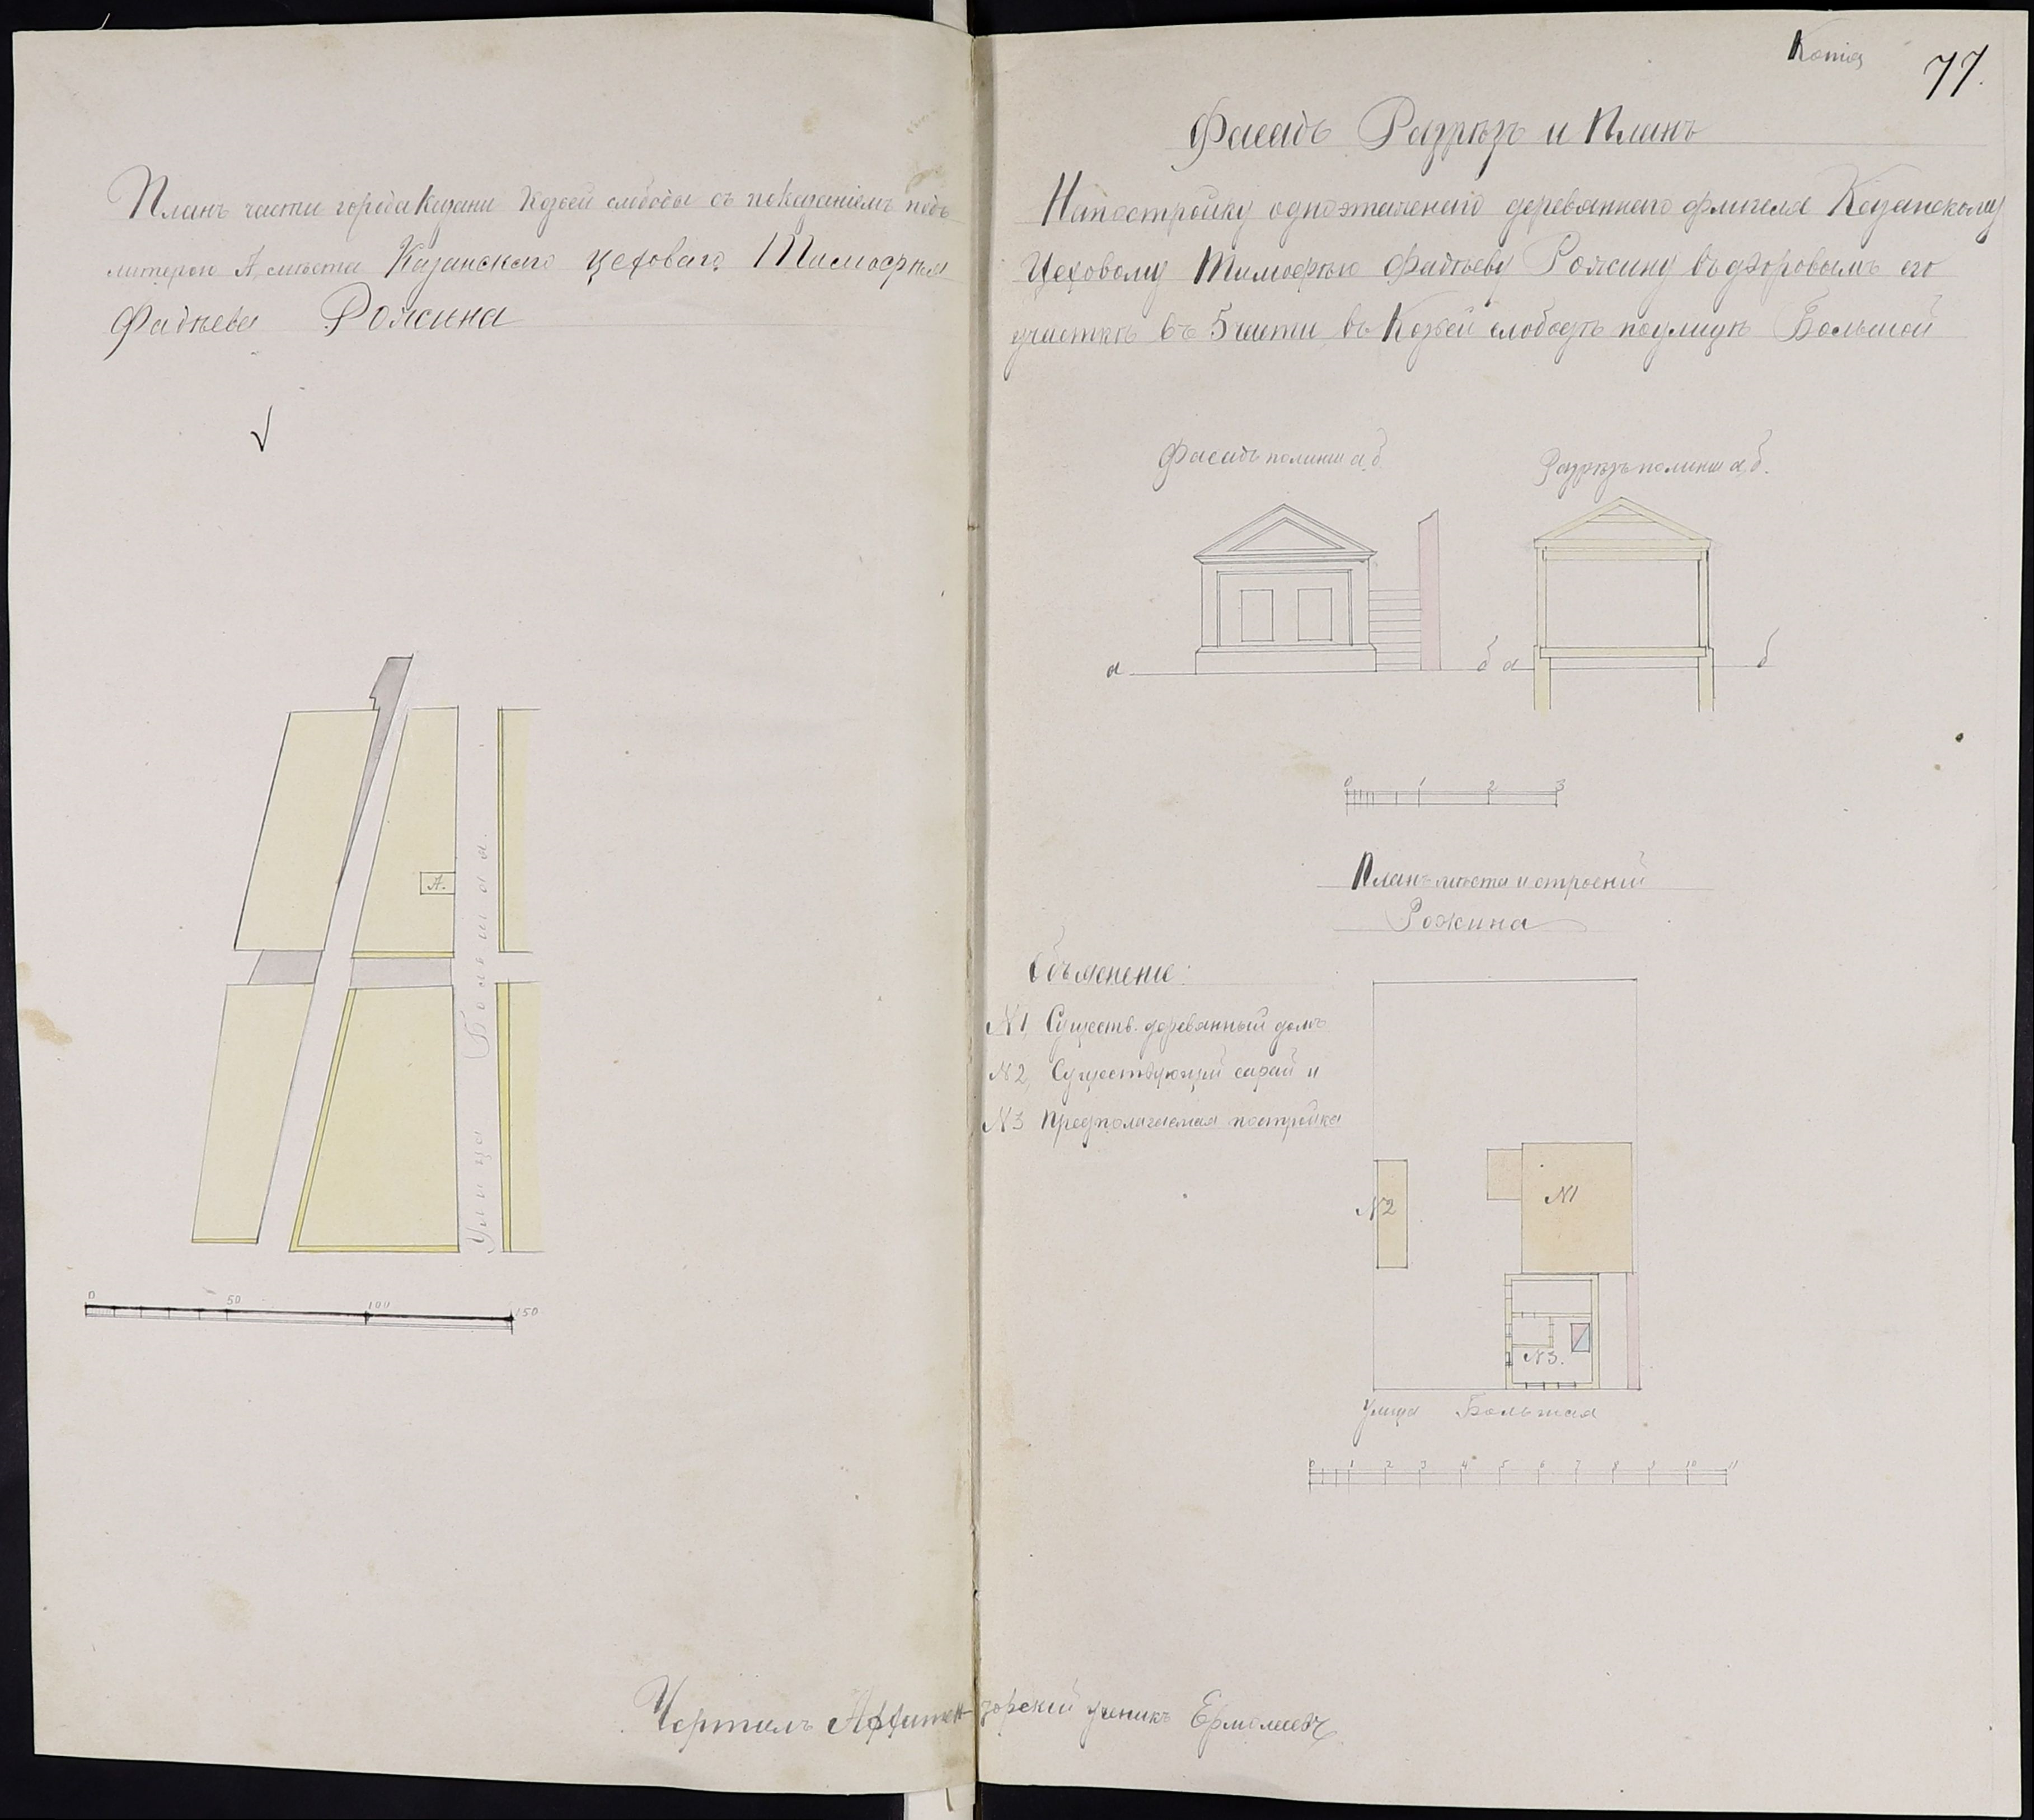 Планъ части города Казани Козьей слободы съ показаніемъ подъ
литерою А, мѣста Казанскаго цеховаго Тимофѣя
Фадѣева Рожина
А.
Улица Большая.
0 50 100 150
Копія
77.
Фасадъ Разрѣзъ и Планъ
На постройку одноэтажнаго деревяннаго флигеля Казанскому
Цеховому Тимофѣю Фадѣеву Рожину въ дворовымъ его
участкѣ въ 5 части, въ Козьей слободѣ по улицѣ Большой
Фасадъ по линіи а, б
Разрѣзъ по линіи а, б.
а б а б
0 1 2 3
Планъ мѣста и строеній
Рожина
Объясненіе:
№1, Существ. деревянный домъ
№2, Существующій сарай и
№3 Предполагаемая постройка
№1
№2
№3.
Улица Большая
0 1 2 3 4 5 6 7 8 9 10 11
Чертилъ Архитекторскій ученикъ Ермолаевъ